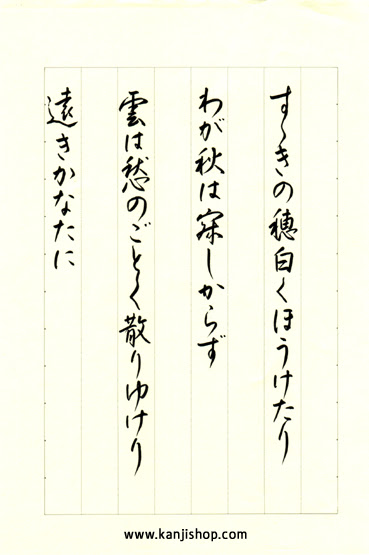 すゝきの穂白くほうけたり
わが秋は寂しからず
雲は愁のごとく散りゆけり
遠きかなたに
www.kanjishop.com